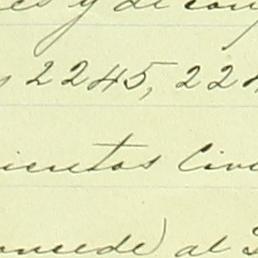 y de con
2245, 22
ientos Civi
oncede) al